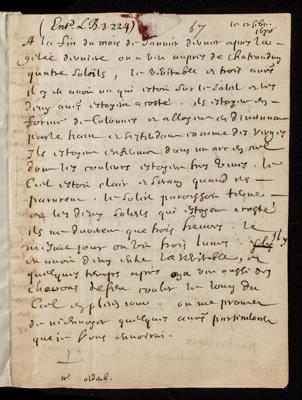 (Entr. L.B. 3. 224) 67 le 12 febr. 1670
A la fin du mois de Janvir dernier apres la
gelée derniere on a veu aupres de chateaudun
quatre soleils, le veritable et trois autres
il y en avoit un qui estoit sur le soleil et les
deux autres estoyent a costé. ils estoyent en
forme de Colomnes et alloyent en diminuant
par le haut et s'estendant comme des verges
ils estoyent enfermes dans un arc en ciel
dont les couleurs estoyent tres vives. le
Ciel estoit clair et serain quand ils
parurent. le soleil paroissoit
et les deux soleils qui estoyent a costé
ils ne durerent que trois heures. le
mesme jour on vit trois lunes. il y
en avoit deux outre la veritable, et
quelques temps apres on a veu aussi des
chevrons de feu couler le long du
Ciel en plein jour. on me promet
de m'envoyer quelques autres particularités
que je vous envoiray.